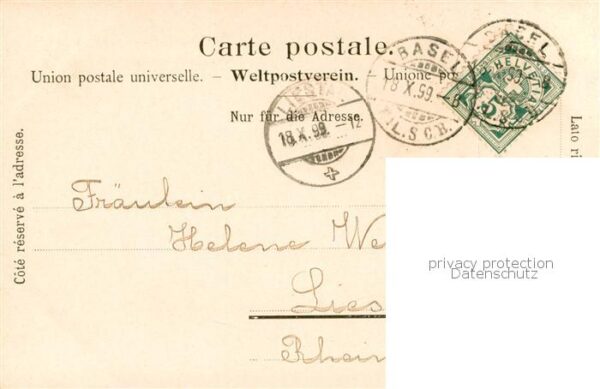 Carte postale.
Union postale universelle. – Weltpostverein. – Unione po
Nur für die Adresse.
Côté réservé à l'adresse.
Lato ri
BASEL
18.X.99.-8
LIESTAL
18.X.99.-12
BASEL
HELVETIA
5
Fräulein
Helene We
Lies
Rhein
privacy protection
Datenschutz